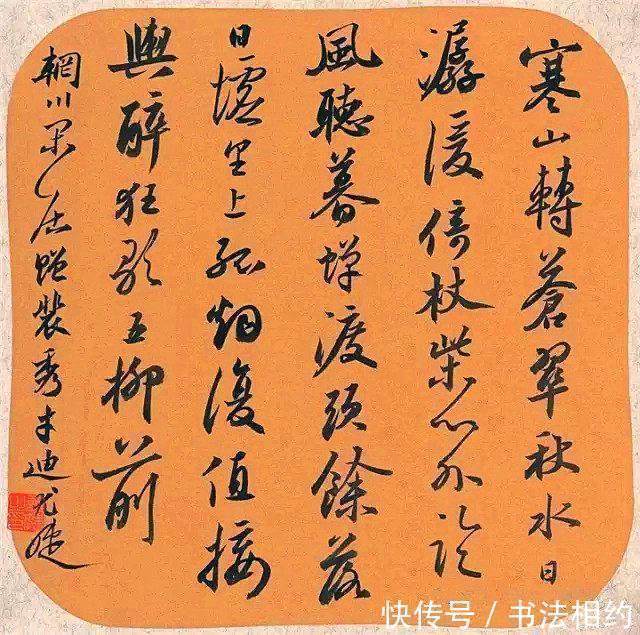 寒山轉蒼翠秋水日
潺湲倚杖柴門外臨
風聽暮蟬渡頭餘落
日墟里上孤烟復值接
輿醉狂歌五柳前
輞川閑居贈裴秀才迪尤
快传号 / 书法相约